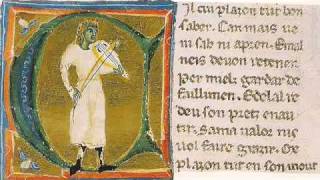 il cui plazon tut bon
saber. Car mais ue
ni sab ni apren. Emal
neis deuon retener.
Per miels gardar de
faillimen. Edelal re
deu son prett enau
tir. Sama ualor nie
uol faire grazir. Ce
plazon tut en son mout